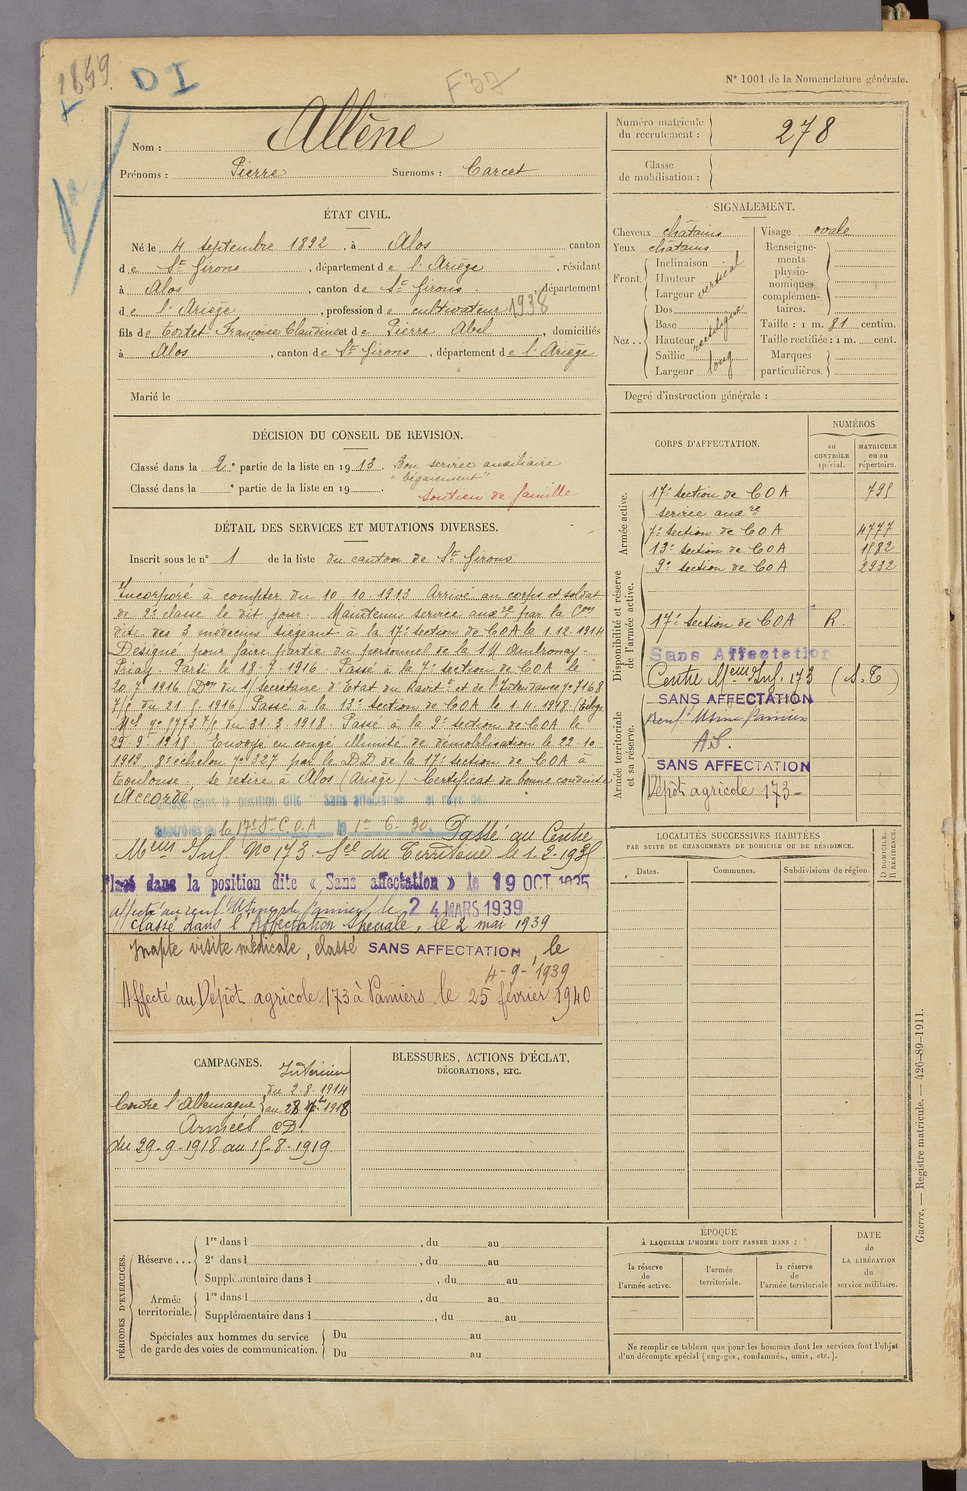 1849
DI
F37
N° 1001 de la Nomenclature générale.
Nom : Allène
Prénoms : Pierre Surnoms : Carcet
ÉTAT CIVIL.
Né le 4 septembre 1892, à Alos canton
de St Girons, département de l'Ariège, résidant
à Alos, canton de St Girons, département
de l'Ariège, profession de cultivateur 1938
fils de Tortet Françoise Claudine et de Pierre Abel, domiciliés
à Alos, canton de St Girons, département de l'Ariège
Marié le
DÉCISION DU CONSEIL DE REVISION.
Classé dans la 2e partie de la liste en 1913. Bon service auxiliaire
"bégaiement"
Classé dans la e partie de la liste en 19 .
soutien de famille
DÉTAIL DES SERVICES ET MUTATIONS DIVERSES.
Inscrit sous le n° 1 de la liste du canton de St Girons
Incorporé à compter du 10 10 1913 Arrivé au corps et soldat
de 2e classe le dit jour. Maintenu service auxre par la Con
dite des 3 médecins siégeant à la 17e section de COA le 1.12.1914
Désigné pour faire partie du personnel de la Ambronay-
Priay. Parti le 18-7-1916. Passé à la 7e section de COA le
20 7 1916 (Don du s/secrétaire d'Etat du Ravitt et de l'Intendance n° 7168
7/5 du 21 5 1916) Passé à la 13e section de COA le 1.4.1918
n° 5773 7/5 du 31.3.1918. Passé à la 9e section de COA le
29 9 1918 Envoyé en congé illimité de démobilisation le 22 10
1919, 8e échelon n° 327 par le DD de la 17e section de COA à
Toulouse, se retire à Alos (Ariège) Certificat de bonne conduite
Accordé
Classé dans la position dite "Sans affectation" et rayé des
contrôles de la 17e Son C.O.A le 1er 6-30. Passé au Centre
Mem Inf. N° 173. Sce du Territoire le 1.2.1935
Placé dans la position dite « Sans affectation » le 19 OCT 1935
affecté au renft Usine de Pamiers le 24 MARS 1939
classé dans l'Affectation Spéciale, le 2 mai 1939
Inapte visite médicale, classé SANS AFFECTATION, le
4-9-1939
Affecté au Dépôt agricole 173 à Pamiers le 25 février 1940
CAMPAGNES.
Intérieur
du 2-8-1914
Contre l'Allemagne au 28 1918
Armées CD
du 29-9-1918 au 15-8-1919
BLESSURES, ACTIONS D'ÉCLAT,
DÉCORATIONS, ETC.
PÉRIODES D'EXERCICES.
Réserve... 1re dans l , du au
2e dans l , du au
Supplémentaire dans l , du au
Armée territoriale. 1re dans l , du au
Supplémentaire dans l , du au
Spéciales aux hommes du service
de garde des voies de communication. Du au
Du au
Numéro matricule
du recrutement : 278
Classe
de mobilisation :
SIGNALEMENT.
Cheveux châtains
Yeux châtains
Front. Inclinaison
Hauteur vertical
Largeur
Nez.. Dos
Base rectiligne
Hauteur
Saillie long
Largeur
Visage ovale
Renseigne-
ments
physio-
nomiques
complémen-
taires.
Taille : 1 m. 81 centim.
Taille rectifiée : 1 m. cent.
Marques
particulières.
Degré d'instruction générale :
CORPS D'AFFECTATION.
NUMÉROS
au
CONTRÔLE
spécial.
MATRICULE
ou au
répertoire.
Armée active.
17e section de COA 795
service auxre
7e section de COA 4777
13e section de COA 1582
9e section de COA 2932
Disponibilité et réserve
de l'armée active.
17e section de COA R.
Sans Affectation
Centre Mem Inf. 173 (S.T)
Armée territoriale
et sa réserve.
SANS AFFECTATION
Renft Usine Pamiers
A.S.
SANS AFFECTATION
Dépôt agricole 173-
LOCALITÉS SUCCESSIVES HABITÉES
PAR SUITE DE CHANGEMENTS DE DOMICILE OU DE RÉSIDENCE.
Dates. Communes. Subdivisions de région.
D DOMICILE.
R RÉSIDENCE.
ÉPOQUE
À LAQUELLE L'HOMME DOIT PASSER DANS :
la réserve
de
l'armée active.
l'armée
territoriale.
la réserve
de
l'armée territoriale
DATE
de
LA LIBÉRATION
du
service militaire.
Ne remplir ce tableau que pour les hommes dont les services font l'objet
d'un décompte spécial (engagés, condamnés, omis, etc.).
Guerre. — Registre matricule. — 426-89-1911.